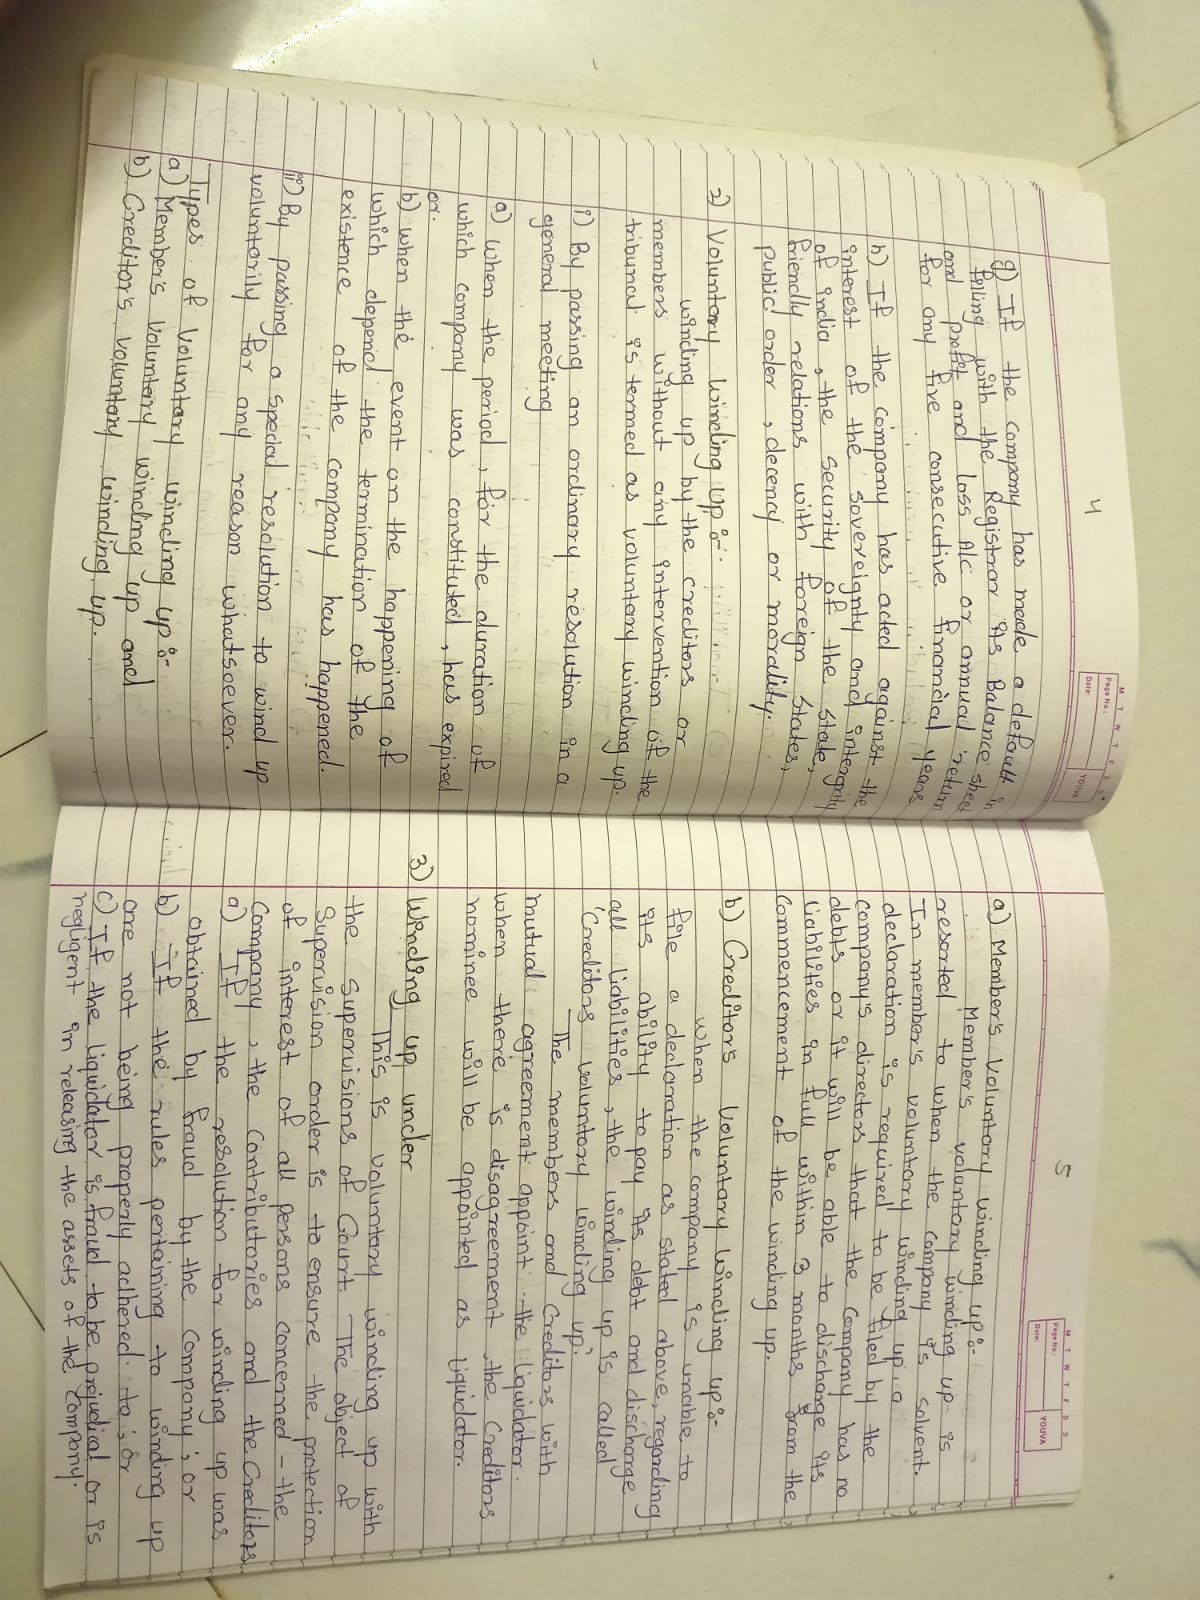 4
M T W T F S S
Page No.:
Date:
YOUVA
g) If the company has made a default in
filling with the Registrar its Balance sheet
and profit and loss A/c or annual return
for any five consecutive financial years
h) If the company has acted against the
interest of the sovereignty and intergrity
of india, the security of the state,
friendly relations with foreign states,
public order, decency or morality.
2) Voluntary winding up :-
winding up by the creditors or
members without any intervention of the
tribunal is termed as voluntary winding up.
i) By passing an ordinary resolution in a
general meeting
a) when the period, for the duration of
which company was constituted, has expired
or.
b) when the event on the happening of
which depend the termination of the
existence of the company has happened.
ii) By passing a special resolution to wind up
voluntarily for any reason whatsoever.
Types of Voluntary winding up :-
a) Member's Voluntary winding up and
b) Creditor's voluntary winding up.
5
M T W T F S S
Page No.:
Date:
YOUVA
a) Member's Voluntary winding up :-
Member's voluntary winding up is
resorted to when the company is solvent.
In member's voluntary winding up, a
declaration is required to be filed by the
company's directors that the company has no
debts or it will be able to discharge its
liabilities in full within 3 months from the
commencement of the winding up.
b) Creditor's Voluntary winding up :-
when the company is unable to
file a declaration as stated above, regarding
its ability to pay its debt and discharge
all liabilities, the winding up is called
'Creditors voluntary winding up'.
The members and Creditors with
mutual agreement appoint the liquidator.
when there is disagreement, the Creditors
nominee will be appointed as liquidator.
3) Winding up under
This is voluntary winding up with
the supervisions of Court. The object of
Supervision order is to ensure the protection
of interest of all persons concerned - the
Company, the contributories and the Creditors
a) If the resolution for winding up was
obtained by fraud by the company; or
b) If the rules pertaining to winding up
are not being properly adhered to; or
c) If the liquidator is fraud to be prejudical or is
negligent in releasing the assets of the company.